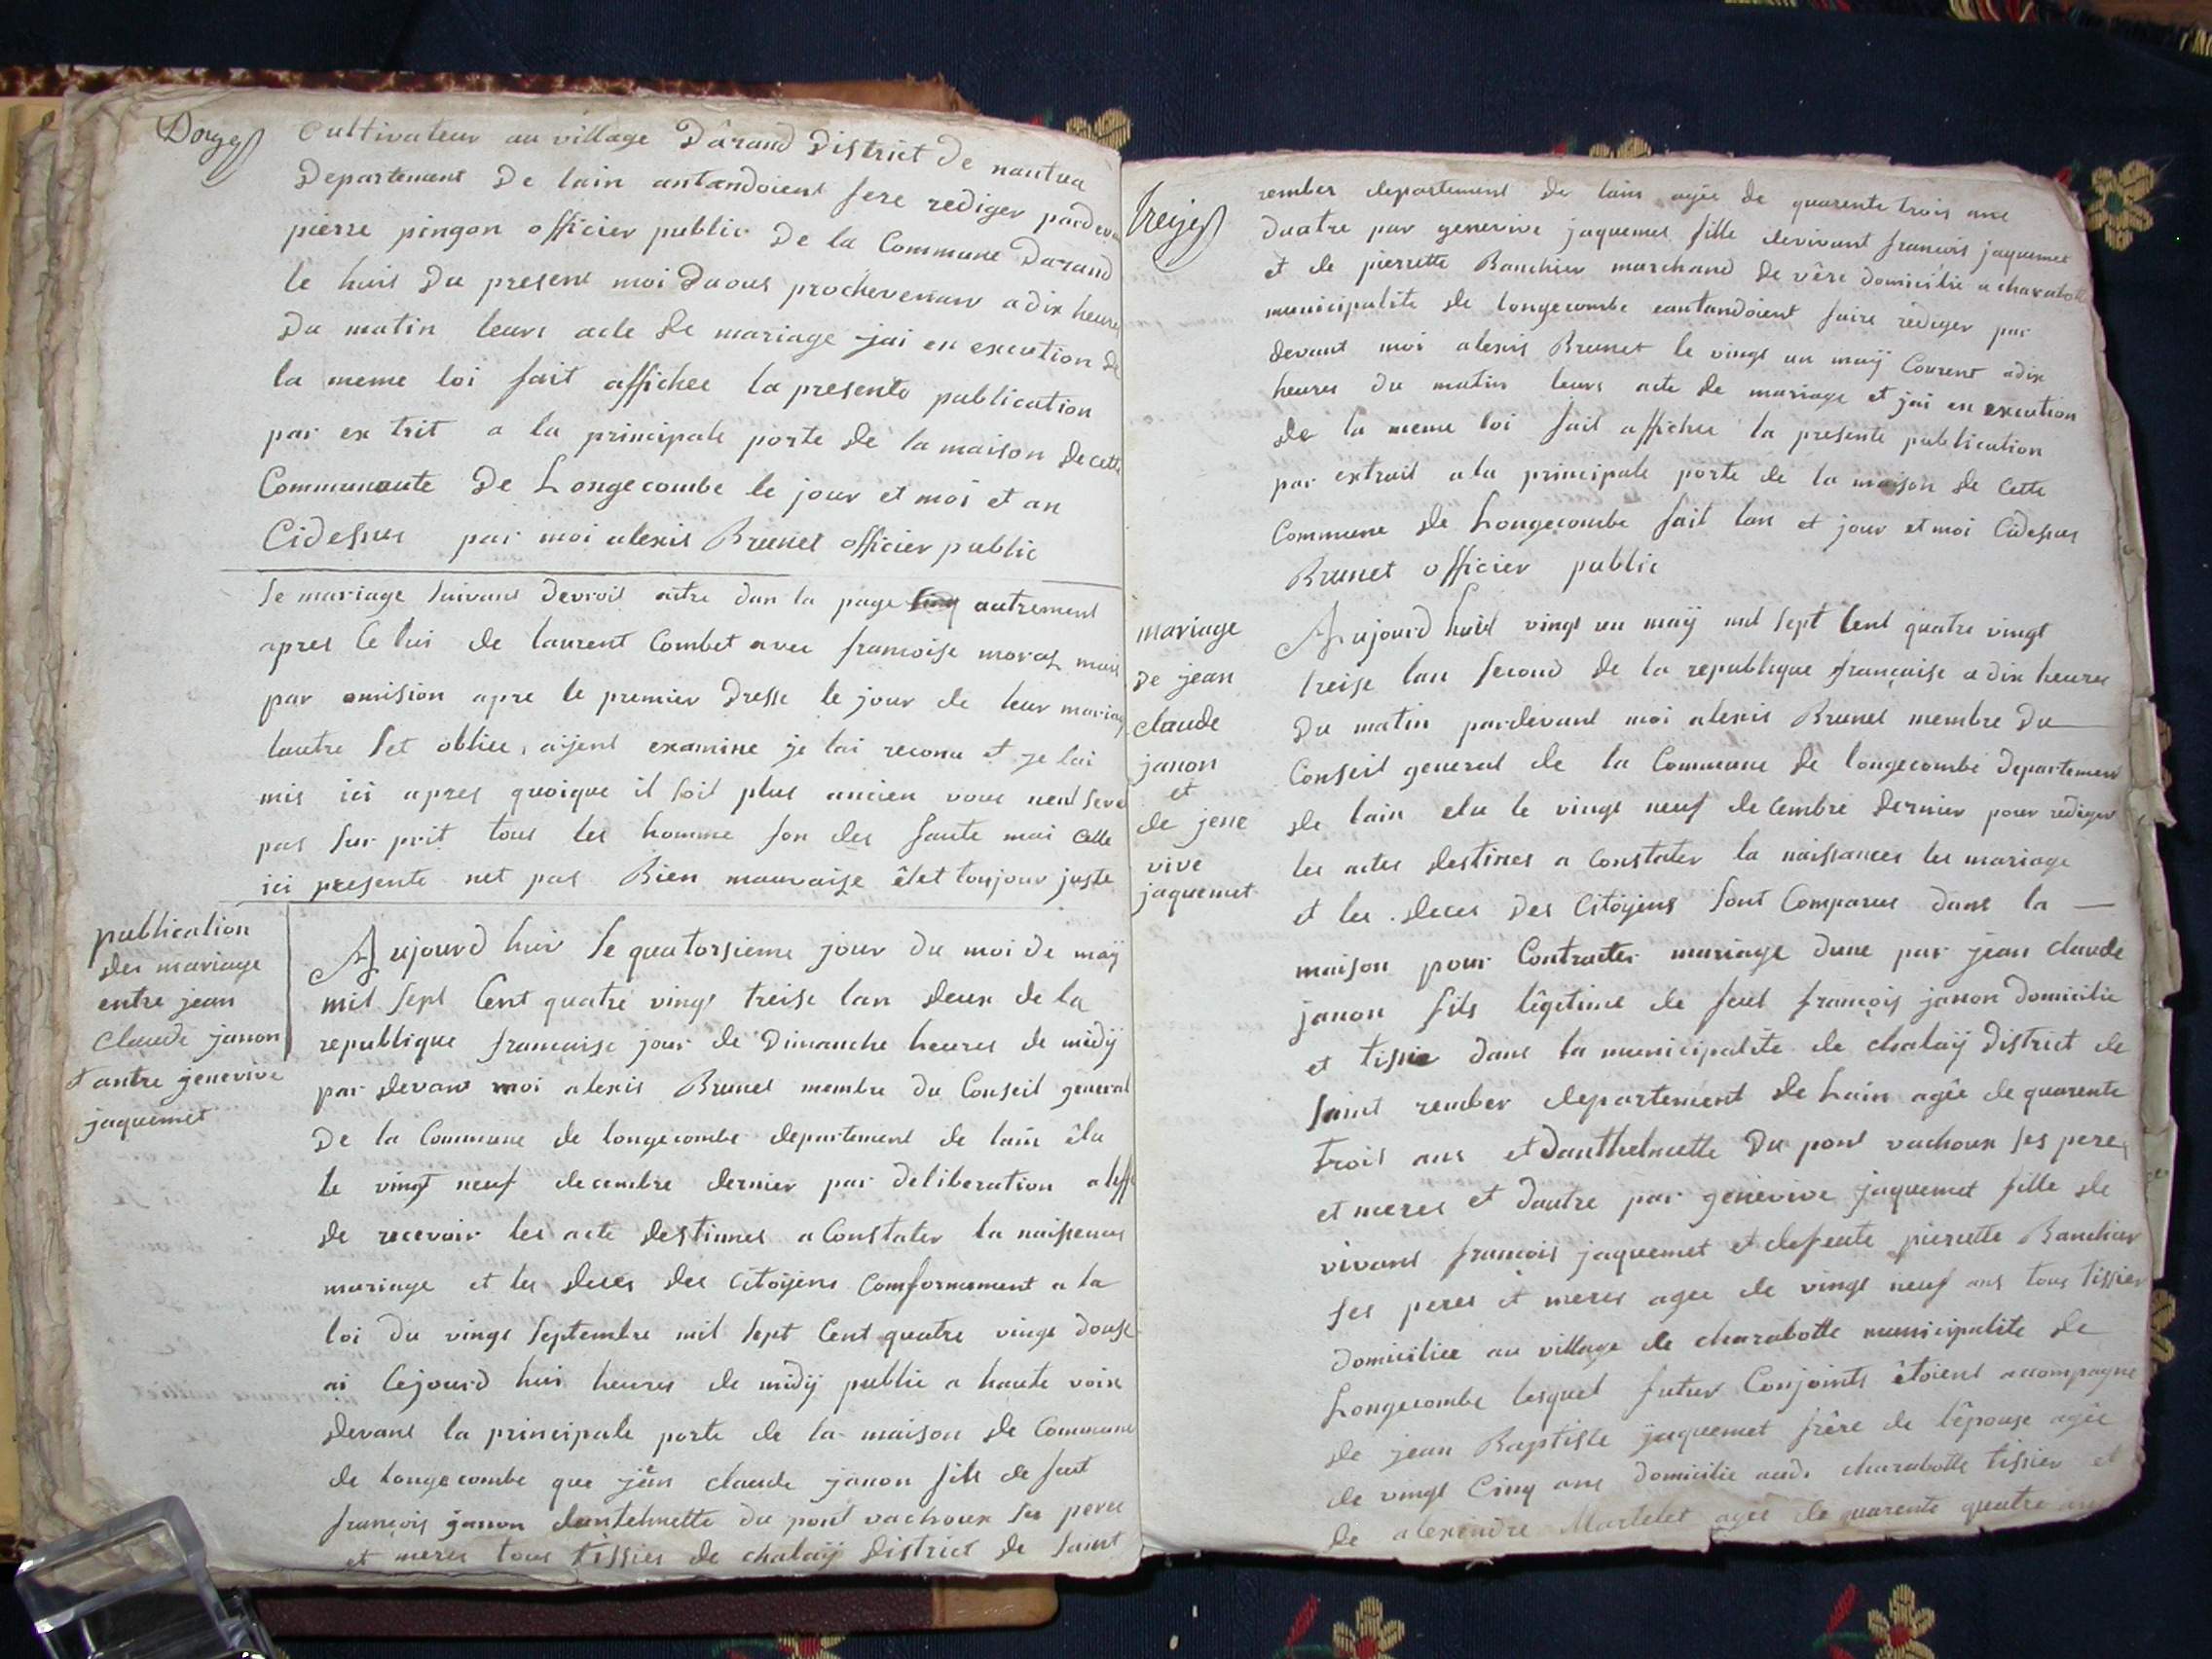 Douze
Cultivateur au village Dârand District De nantua
Departement De lain antandoient fere rediger pardeva
pierre pingon officier public De la Commune Darand
le huit Du present moi Daous prochevenant a dix heures
Du matin leurs acte de mariage jai en execution de
la meme loi fait affichee la presente publication
par ex trit a la principale porte de la maison de cette
Communaute De Longecombe le jour et moi et an
Cidessus par moi alexis Brunet officier public
le mariage suivant devroit aitre dan la page autrement
apres Celui de laurent Combet avec francoise moraz mais
par omision apre le premier Dresse le jour de leur mariag
lautre set obliee, aijent examine je lai reconu et je lai
mis ici apres quoique il soit plus ancien vous nent sere
pas sur prit tous les homme fon des faute mai Celle
ici presente net pas Bien mauvaise êlet toujour juste
publication
des mariage
entre jean
Claude janon
dantre genevive
jaquemet
Aujourd hui le quatorsieme jour du moi de maÿ
mil sept Cent quatre vingt treise lan deux de la
republique francaise jour de Dimanche heures de midÿ
par devant moi alexis Brunet membre du Conseil general
De la Commune de longecombe departement de lain êlu
le vingt neuf decembre dernier par deliberation a leff
de recevoir les acte destinnes a Constater la naissences
mariage et les deces des Citoÿens Comformement a la
loi du vingt septembre mil sept Cent quatre vingt douse
ai Cejourd hui heures de midÿ publie a haute voix
devant la principale porte de la maison de Commune
de longecombe que jean claude janon fils de feut
francois janon dantelmette du pont vachoux ses peres
et meres tous tissies de chalaÿ district de saint
Treize
rember departement de lain agée de quarente trois ans
Dautre par genevive jaquemet fille devivant francois jaquemet
et de pierrette Banchier marchand de vêre domicilie a charabotte
municipalite de longecombe eantandoient faire rediger par
devant moi alexis Brunet le vingt un maÿ Courent a dix
heures du matin leurs acte de mariage et jai en execution
de la meme loi fait affichee la presente publication
par extrait a la principale porte de la maison de Cette
Commune de Longecombe fait lan et jour et moi Cidessus
Brunet officier public
mariage
De jean
claude
janon
et
de jene
vive
jaquemet
Aujourd huit vingt un maÿ mil sept Cent quatre vingt
treise lan second de la republique française a dix heures
Du matin pardevant moi alexis Brunet membre Du
Conseil general de la Commune de longecombe departement
de lain elu le vingt neuf decembre dernier pour rediger
les actes destines a Constater la naissances les mariage
et les deces des Citoÿens sont Comparus dans la
maison pour Contracter mariage dune par jean claude
janon fils légitime de feut françois janon domicilie
et tissie dans la municipalite de chalaÿ District de
saint rember departement de Lain agée de quarente
trois ans et Danthelmette Du pont vachoux ses peres
et meres et dautre par genevive jaquemet fille de
vivant francois jaquemet et defente pierrette Banchier
ses peres et meres agee de vingt neuf ans tous tissier
domiciliee au village de charabotte municipalite de
Longecombe lesquel futur Conjoints êtoient accompagne
de jean Baptiste jaquemet frêre de lêpouse agée
de vingt Cinq ans domicilie audi charabotte tissier et
de alexendre Martelet agee de quarente quatre ans